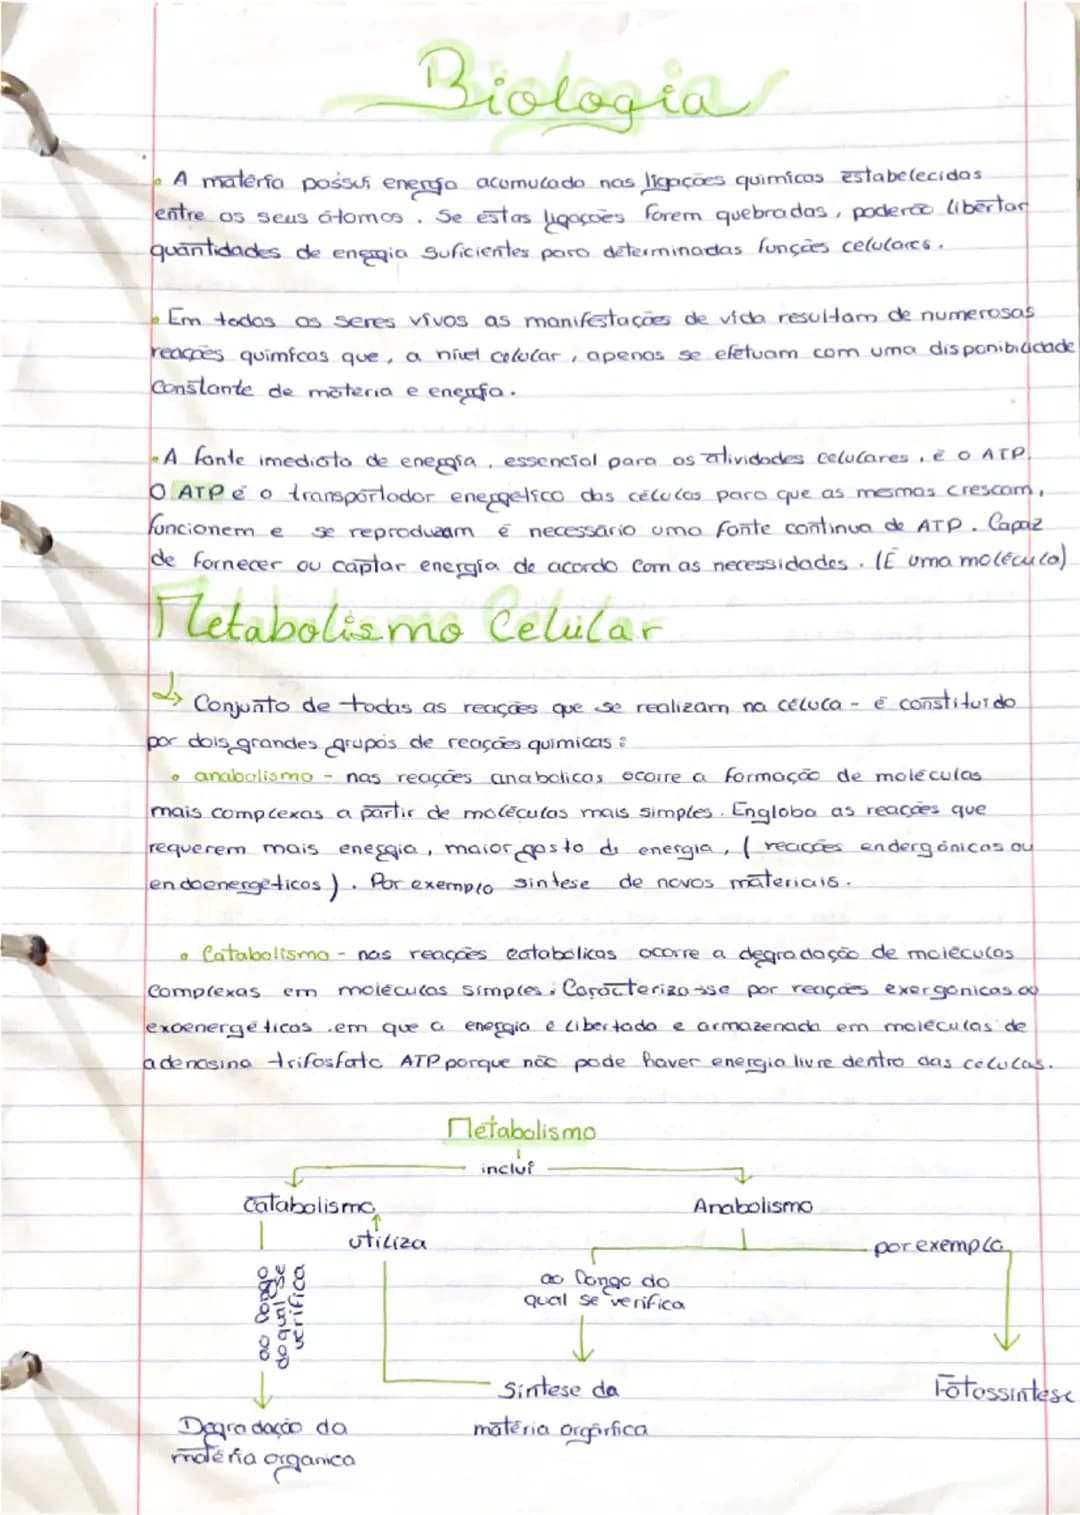 Biologia
• A matéria possui energia acumulada nas ligações quimicas estabelecidas
entre os seus átomos. Se estas ligações forem quebradas, poderão libertar
quantidades de energia suficientes para determinadas funções celulares.
• Em todos os seres vivos as manifestações de vida resultam de numerosas
reações quimicas que, a nível celular, apenas se efetuam com uma disponibilidade
Constante de matéria e energia.
• A fonte imediata de energia, essencial para as atividades celulares, é o ATP.
O ATP é o transportador energético das células para que as mesmas cresçam,
funcionem e se reproduzam é necessário uma fonte contínua de ATP. Capaz
de fornecer ou captar energia de acordo com as necessidades. (É uma molécula)
Metabolismo Celular
↳ Conjunto de todas as reações que se realizam na célula - é constituído
por dois grandes grupos de reações quimicas:
• anabolismo - nas reações anabolicas ocorre a formação de moléculas
mais complexas a partir de moléculas mais simples. Engloba as reações que
requerem mais energia, maior gasto de energia, (reações endergónicas ou
endoenergéticas). Por exemplo sintese de novos materiais.
• Catabolismo - nas reações catabólicas ocorre a degradação de moléculas
Complexas em moléculas simples. Caracteriza-sse por reações exergónicas ou
exoenergéticas, em que a energia é libertada e armazenada em moléculas de
adenosina trifosfato ATP porque não pode haver energia livre dentro das celulas.
Metabolismo
incluí
Catabolismo
Anabolismo
utiliza
por exemplo
ao longo
do qual se
verifica
ao longo do
qual se verifica
Síntese da
matéria orgânica
Fotossíntese
Degradação da
matéria organica